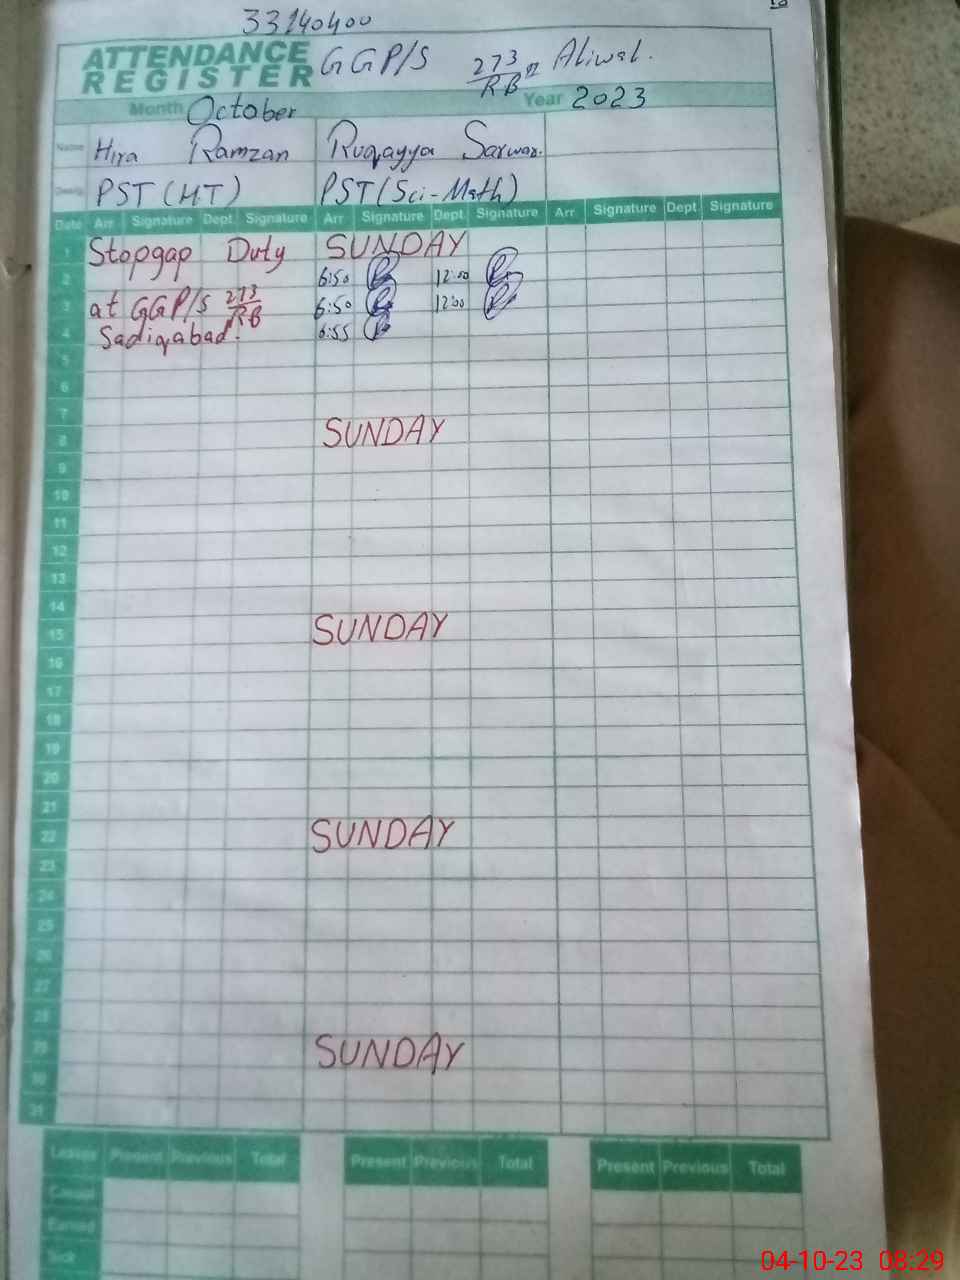 33140400
ATTENDANCE REGISTER GGP/S 273/RB Aliwal.
Month October Year 2023
Name Hira Ramzan Ruqayya Sarwar.
Desig. PST (HT) PST (Sci-Math)
Date Arr Signature Dept Signature Arr Signature Dept. Signature Arr. Signature Dept. Signature
1 Stopgap Duty SUNDAY
2 6:50 12:00
3 at GGP/S 273/RB 6:50 12:00
4 Sadiqabad. 6:55
5
6
7
8 SUNDAY
9
10
11
12
13
14
15 SUNDAY
16
17
18
19
20
21
22 SUNDAY
23
24
25
26
27
28
29 SUNDAY
30
31
Leaves Present Previous Total Present Previous Total Present Previous Total
Casual
Earned
Sick
04-10-23 08:29